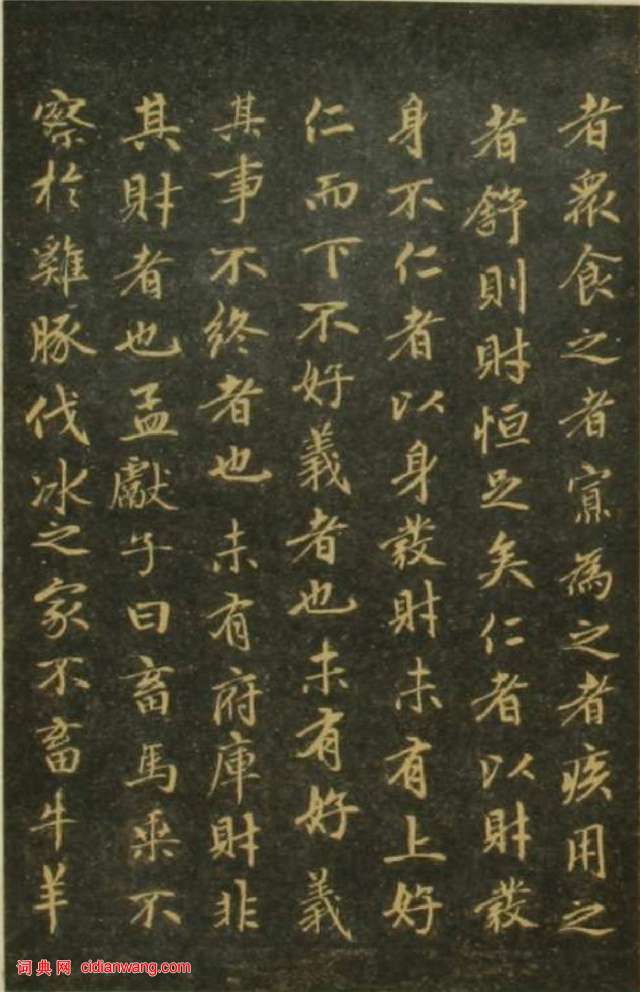 者衆食之者寡為之者疾用之
者舒則財恒足矣仁者以財發
身不仁者以身發財未有上好
仁而下不好義者也未有好義
其事不終者也未有府庫財非
其財者也孟獻子曰畜馬乘不
察於雞豚伐冰之家不畜牛羊
词典网 cidianwang.com